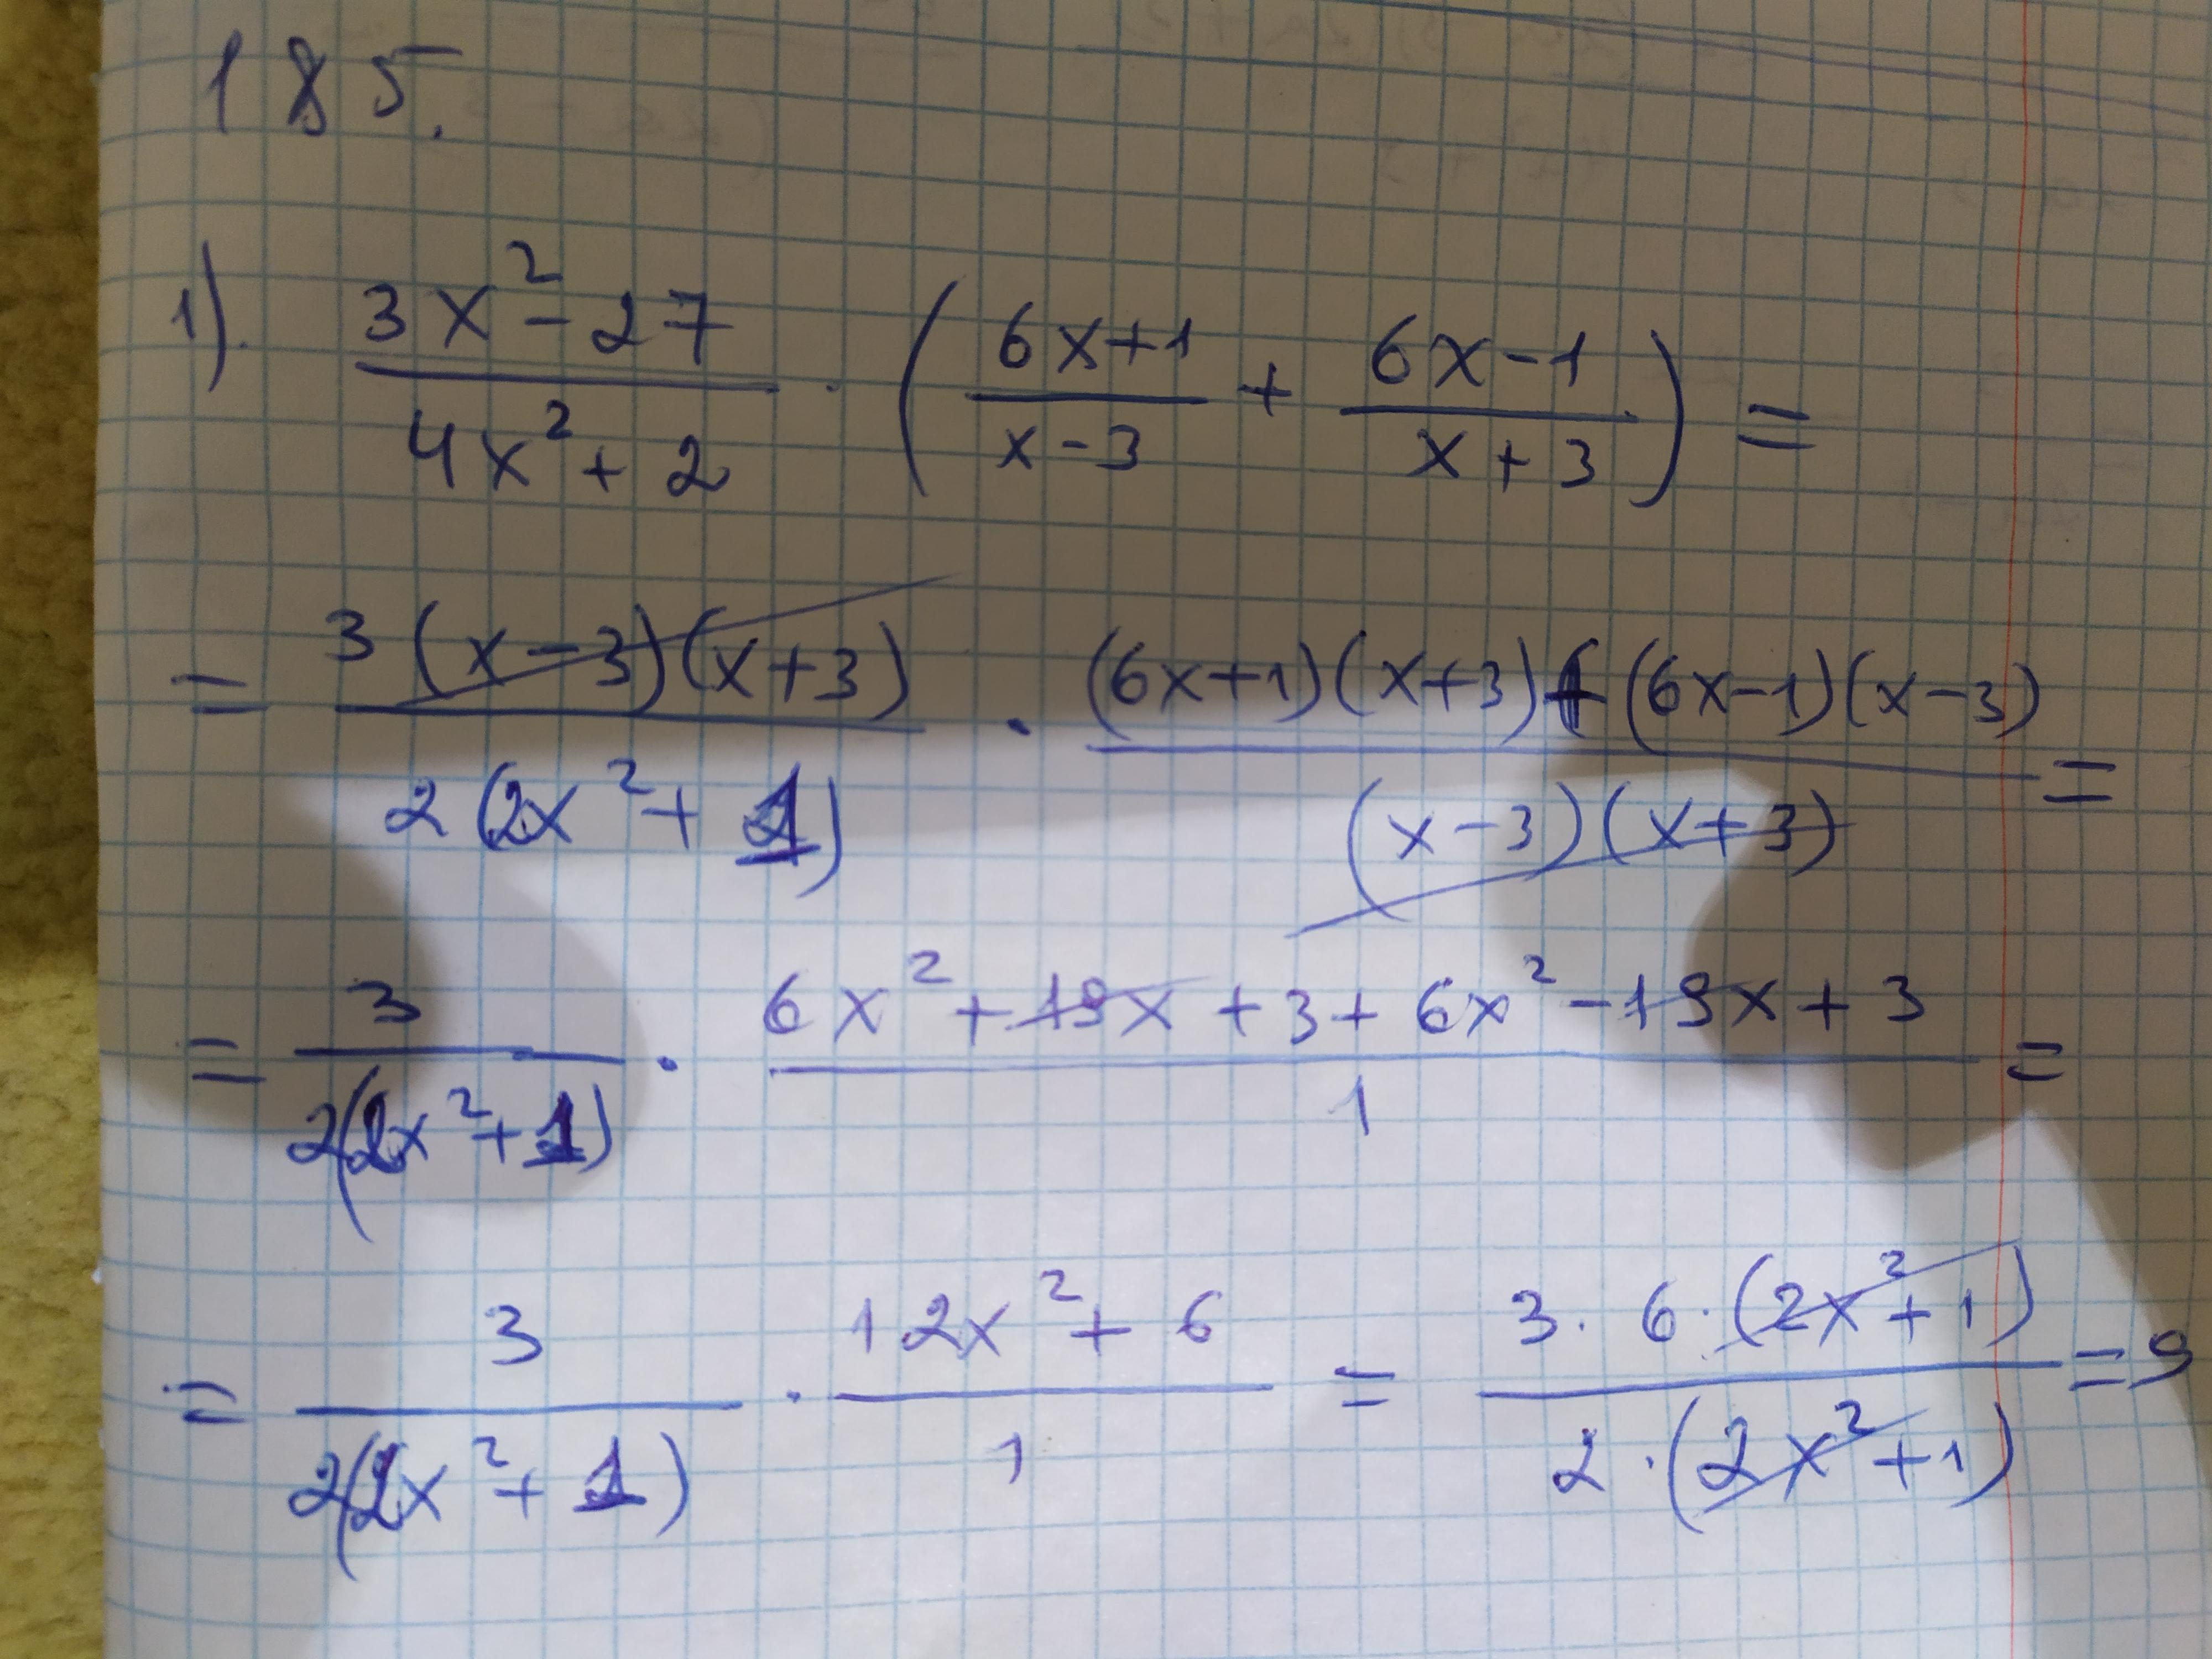 185.
1). (3x² - 27)/(4x² + 2) · ((6x+1)/(x-3) + (6x-1)/(x+3)) =
= (3(x-3)(x+3))/(2(2x² + 1)) · ((6x+1)(x+3)+(6x-1)(x-3))/((x-3)(x+3)) =
= 3/(2(2x²+1)) · (6x² + 19x + 3 + 6x² - 19x + 3)/1 =
= 3/(2(2x² + 1)) · (12x² + 6)/1 = (3 · 6 · (2x² + 1))/(2 · (2x² + 1)) = 9